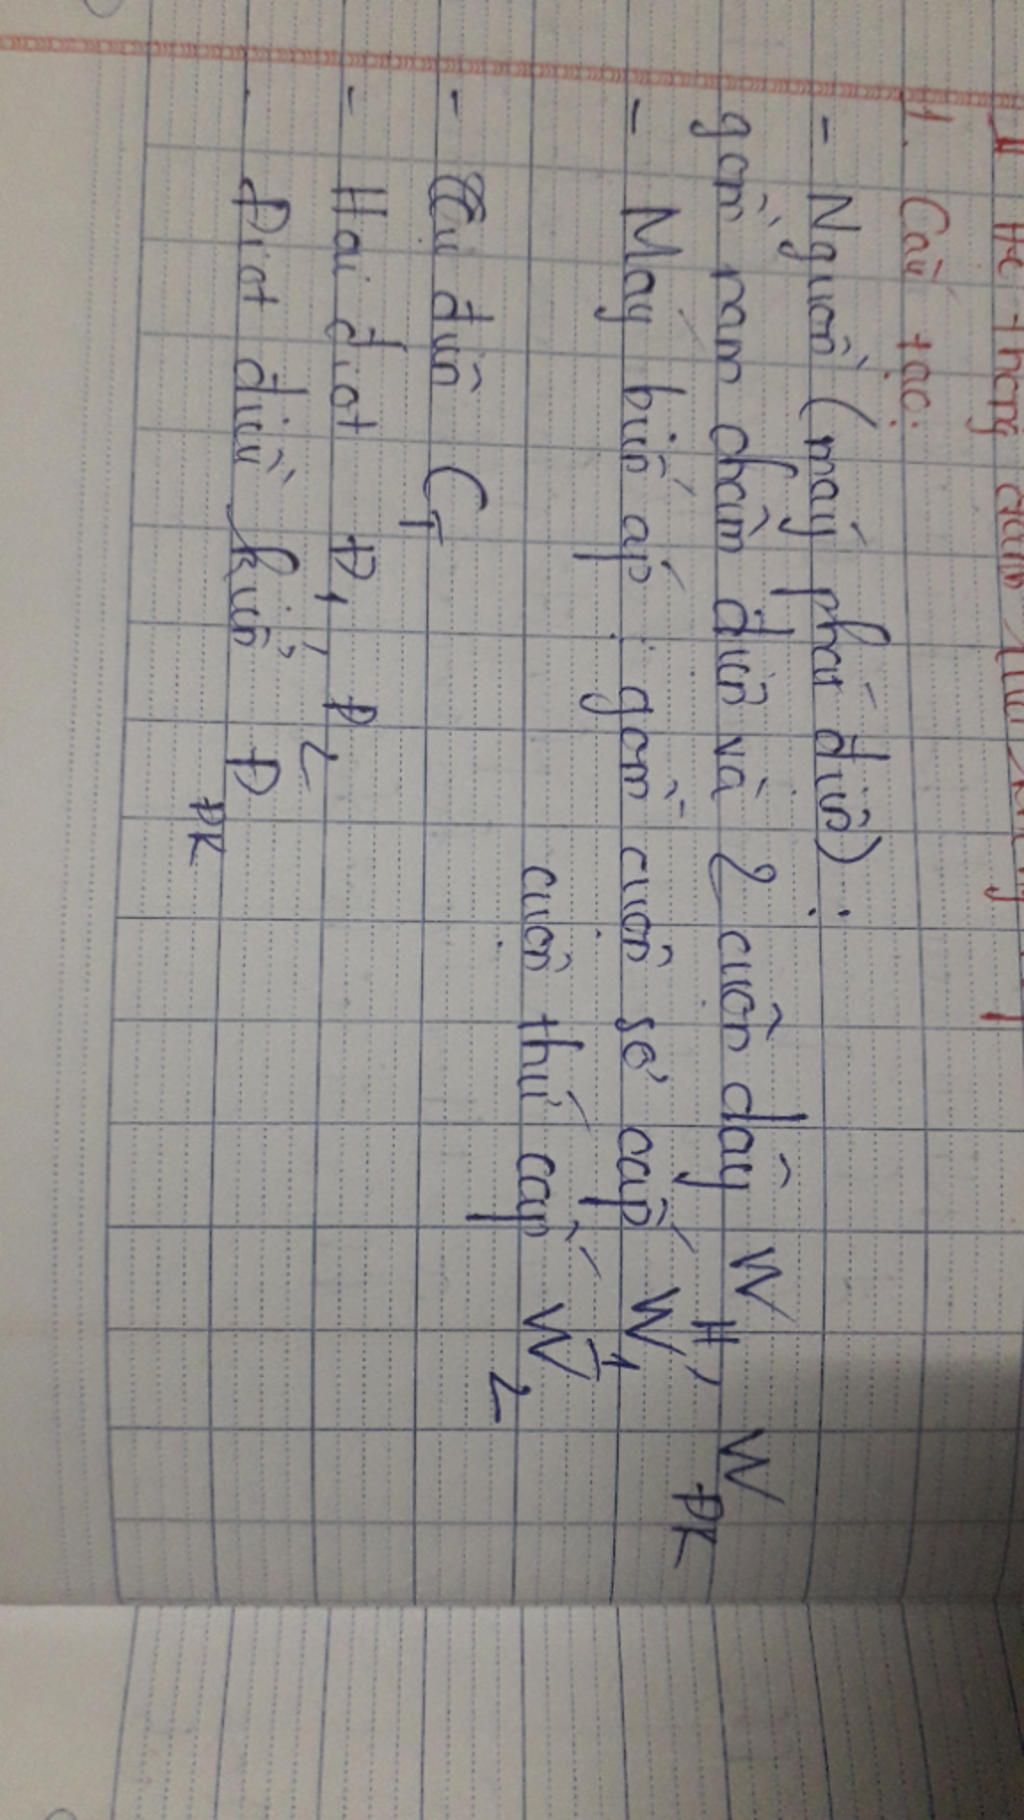 II Hệ thống đánh lửa
1. Cấu tạo:
- Nguồn (máy phát điện):
gồm nam châm điện và 2 cuôn dây W_H, W_ĐK
- Máy biến áp: gồm cuộn sơ cấp W_1
cuộn thứ cấp W_2
- Tụ điện C_T
- Hai điot Đ_1, Đ_2
- Điot điều khiển Đ_ĐK